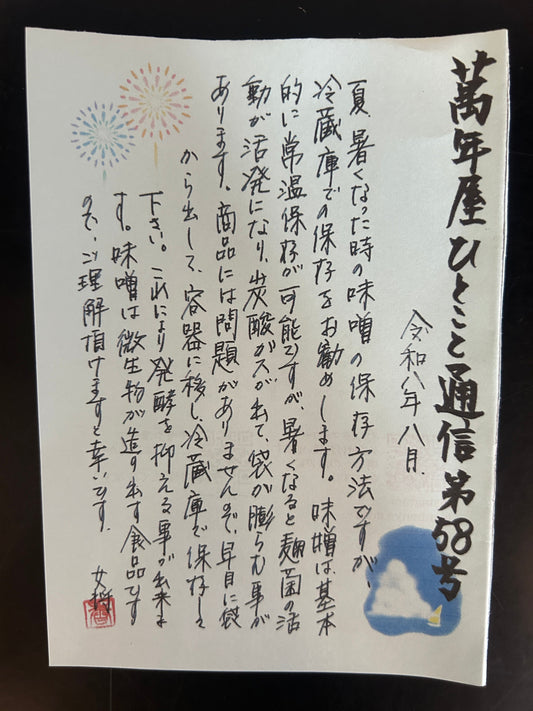 萬年屋ひとこと通信第58号
令和八年八月
夏、暑くなった時の味噌の保存方法ですが、
冷蔵庫での保存をお勧めします。味噌は、基本
的に常温保存が可能ですが、暑くなると麹菌の活
動が活発になり、炭酸ガスが出て、袋が膨らむ事が
あります。商品には問題がありませんので、早目に袋
から出して、容器に移し、冷蔵庫で保存して
下さい。これにより発酵を抑える事が出来ま
す。味噌は微生物が造り出す食品です
ので、ご理解頂けますと幸いです。
女将